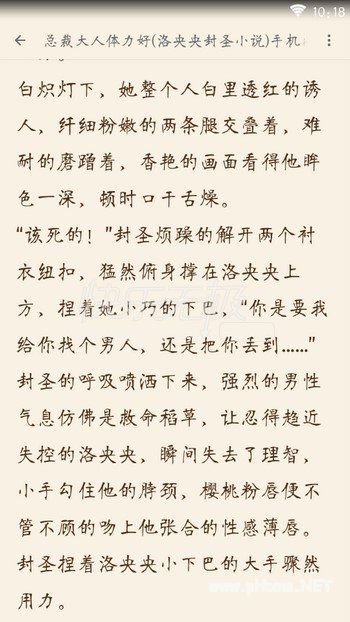 10:18
总裁大人体力好(洛央央封圣小说)手机
白炽灯下，她整个人白里透红的诱
人，纤细粉嫩的两条腿交叠着，难
耐的磨蹭着，香艳的画面看得他眸
色一深，顿时口干舌燥。
“该死的！”封圣烦躁的解开两个衬
衣纽扣，猛然俯身撑在洛央央上
方，捏着她小巧的下巴，“你是要我
给你找个男人，还是把你丢到……”
封圣的呼吸喷洒下来，强烈的男性
气息仿佛是救命稻草，让忍得趋近
失控的洛央央，瞬间失去了理智，
小手勾住他的脖颈，樱桃粉唇便不
管不顾的吻上他张合的性感薄唇。
封圣捏着洛央央小下巴的大手骤然
用力。